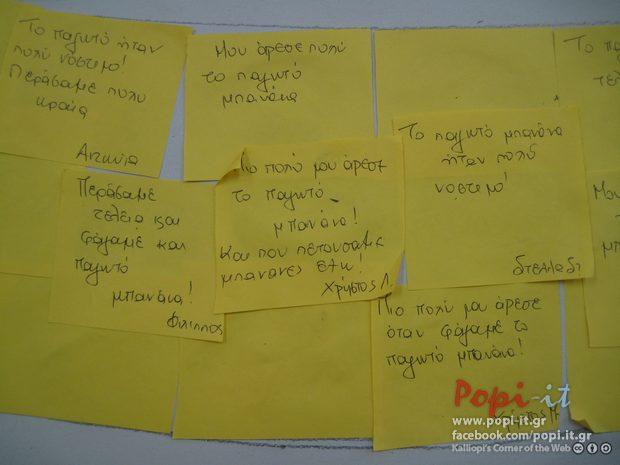 Το παγωτό ήταν
πολύ νόστιμο!
Περάσαμε πολύ
ωραία
Αιτωλία
Μου άρεσε πολύ
το παγωτό
μπανάνα
Το
τέλ
Πιο πολύ μου άρεσε
το παγωτό
μπανάνα!
Και που πετούσαμε
μπανάνες
Χρήστος Λ.
Το παγωτό μπανάνα
ήταν πολύ
νόστιμο!
Περάσαμε
τέλεια και
φάγαμε και
παγωτό
μπανάνα!
Φίλιππος
Μου
Πιο πολύ μου άρεσε
όταν φάγαμε το
παγωτό μπανάνα!
Popi-it
www.popi-it.gr
facebook.com/popi.it.gr
Kalliopi's Corner of the Web